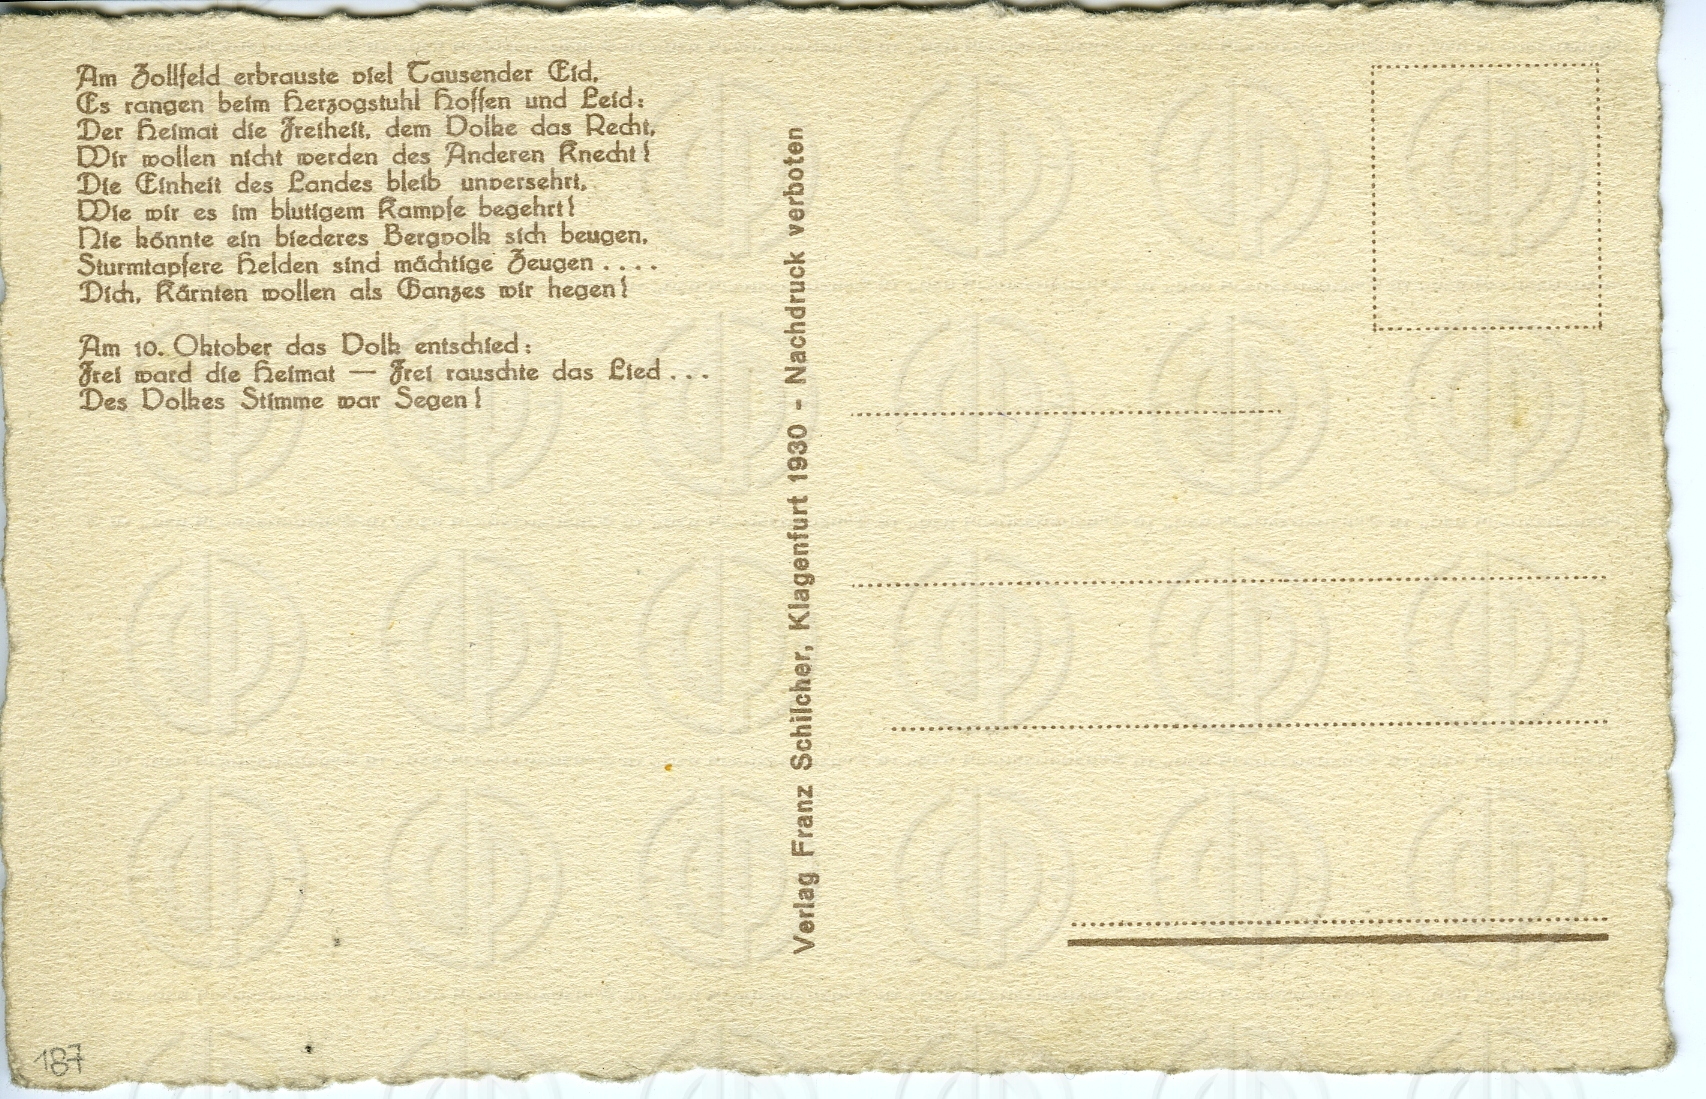 Am Zollfeld erbrauste viel Tausender Eid,
Es rangen beim Herzogstuhl Hoffen und Leid:
Der Heimat die Freiheit, dem Volke das Recht,
Wir wollen nicht werden des Anderen Knecht!
Die Einheit des Landes bleib unversehrt,
Wie wir es im blutigem Kampfe begehrt!
Nie könnte ein biederes Bergvolk sich beugen,
Sturmtapfere Helden sind mächtige Zeugen ....
Dich, Kärnten wollen als Ganzes wir hegen!
Am 10. Oktober das Volk entschied:
Frei ward die Heimat — Frei rauschte das Lied ...
Des Volkes Stimme war Segen!
Verlag Franz Schilcher, Klagenfurt 1930 - Nachdruck verboten
187